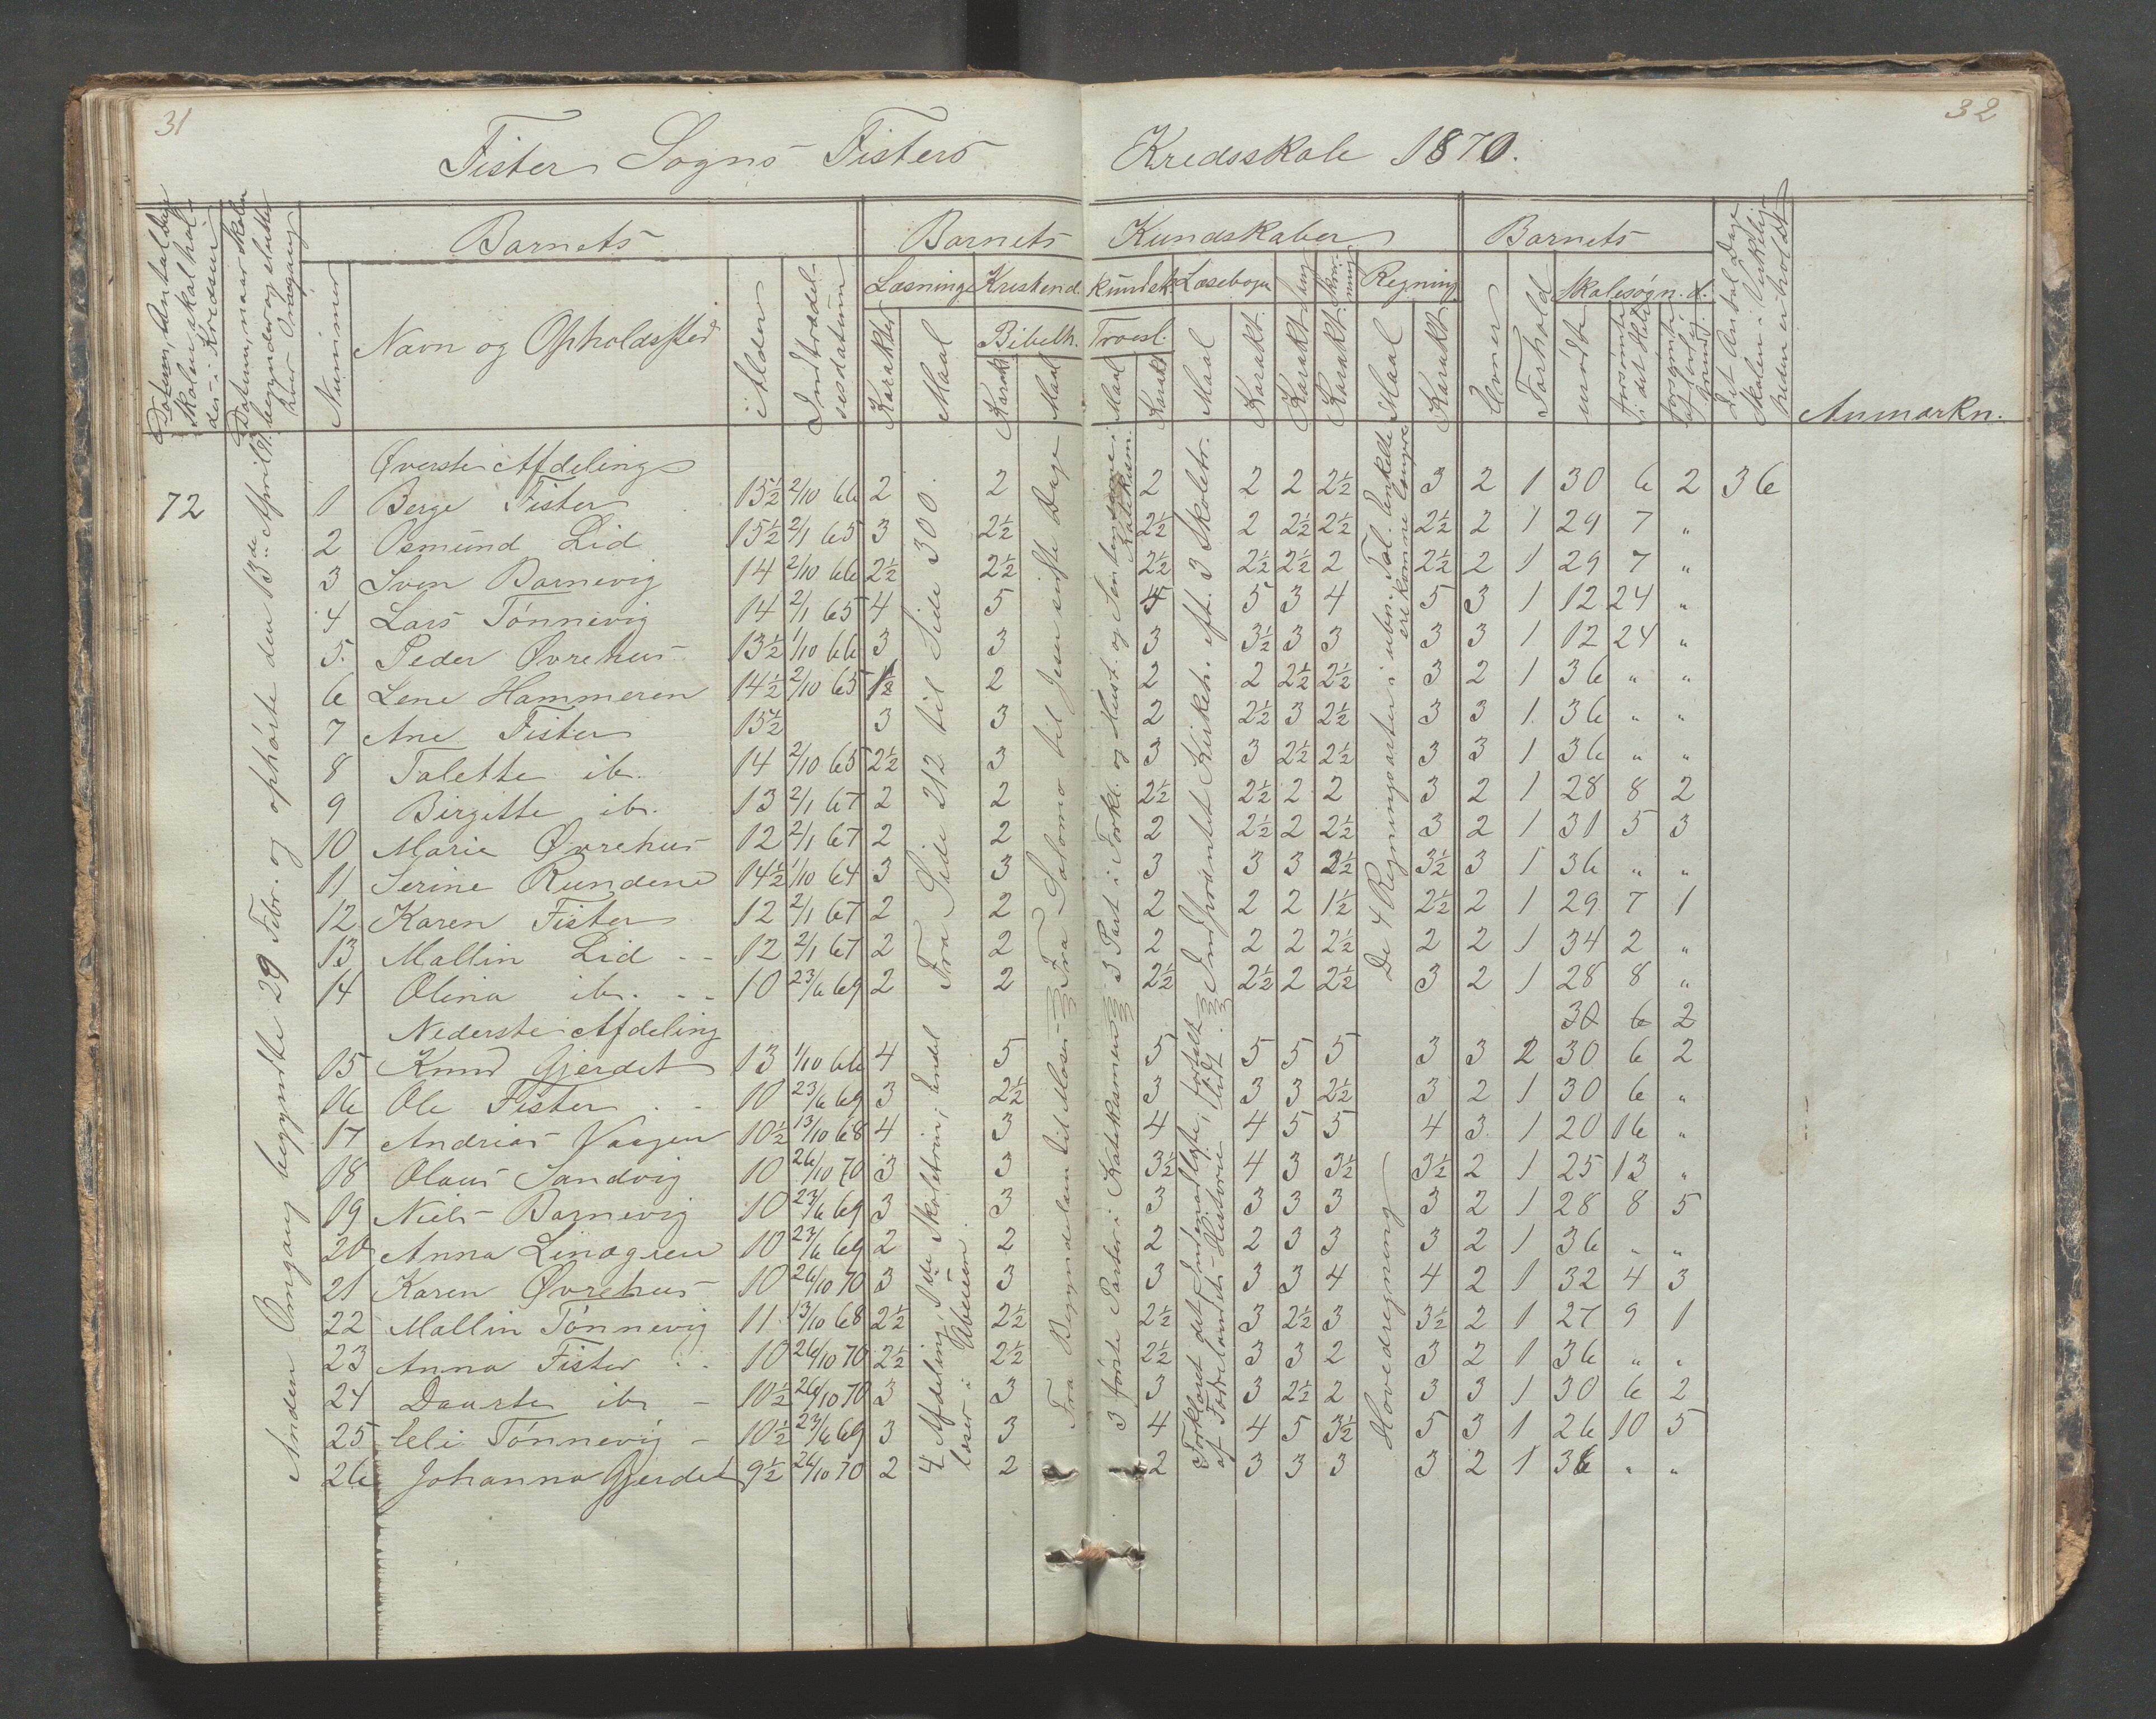 31
32
Fister Sogns Fisters Kredsskole 1870.
Datum, Antal Dage Skolen skal holdes i Kredsen
Datum, naar Skolen begynder og slutter hver Omgang
Nummer
Barnets
Navn og Opholdssted
Alder
Indtrædelsesdatum
Barnets Kundskaber
Læsning
Karakter
Maal
Kristend. kundsk.
Bibelh.
Karakt.
Maal
Troesl.
Maal
Karakt.
Læsebogen
Maal
Karakt.
Karakt.
Skrivning
Karakt.
Regning
Maal
Karakt.
Barnets
Evner
Forhold
Skolesøgn. d.
mødte
forsømte i det Hele
forsømte af lovlig Grund
Det Antal Dage Skolen i Virkeligheden er holdt
Anmærkn.
72
Anden Omgang begyndte 29 Febr. og ophørte den 13de April
Øverste Afdeling
1 Berge Fister 15½ 2/10 66 2 2 2 2 2 2½ 3 2 1 30 6 2 36
2 Osmund Lid 15½ 2/1 65 3 2½ 2½ 2 2½ 2½ 2½ 2 1 29 7 "
3 Sven Barnevig 14 2/10 66 2½ 2½ 2½ 2½ 2½ 2 2½ 2 1 29 7 "
4 Lars Tønnevig 14 2/1 65 4 5 4 5 3 4 5 3 1 12 24 "
5. Peder Øvrehus 13½ 1/10 66 3 3 3 3½ 3 3 3 3 1 12 24 "
6 Lene Hammeren 14½ 2/10 65 1½ 2 2 2 2½ 2½ 3 2 1 36 " "
7 Ane Fister 15½ 3 3 2 2½ 3 2½ 3 3 1. 36 " "
8 Talette ib. 14 2/10 65 2½ 3 3 3 2½ 2½ 3 3 1 36 " "
9 Birgitte ib. 13 2/1 67 2 2 2½ 2½ 2 2 3 2 1 28 8 2
10 Marie Øvrehus 12 2/1 67 2 2 2 2½ 2 2½ 3 2 1 31 5 3
11 Serine Rundene 14½ 1/10 64 3 3 3 3 3 2½ 3½ 3 1 36 " "
12 Karen Fister 12 2/1 67 2 2 2 2 2 1½ 2½ 2 1 29 7 1
13 Mallin Lid - - 12 2/1 67 2 2 2 2 2 2½ 2 2 1 34 2 "
14 Olina ib. - - 10 23/6 69 2 2 2½ 2½ 2 2½ 3 2 1 28 8 "
Fra Side 212 til Side 300.
Fra Salomo til Jesu sidste Dage
3 Part i Forkl. og Hust. og Sentenserne i Katekism.
Indprentet Kirkeh. eft. 3 Skoletr.
De 4 Regningsarter i ubn. Tal. Enkelte ere komne længre
Nederste Afdeling 30 6 2
15 Knud Gjerdet 13 1/10 66 4 5 5 5 5 5 3 3 2 30 6 2
16 Ole Fister - - 10 23/6 69 3 2½ 3 3 3 2½ 3 2 1 30 6 "
17 Andrias Vaagen 10½ 13/10 68 4 3 4 4 5 5 4 3. 1 20 16 "
18 Olaus Sandvig 10 26/10 70 3 3 3½ 4 3 3½ 3½ 2 1 25 13 "
19 Niels Barnevig 10 23/6 69 3 3 3 3 3 3 3 2 1 28 8 5
20 Anna Lindgren 10 23/6 69 2 2 2 2 3 3 3 2 1 36 " "
21 Karen Øvrehus 10 26/10 70 3 3 3 3 3 4 4 2 1 32 4 3
22 Mallin Tønnevig 11 13/10 68 2½ 2½ 2½ 3 2½ 3 3½ 2 1 27 9 1
23 Anna Fister - - 10 26/10 70 2½ 2½ 2½ 3 3 2 3 2 1 36 " "
24 Daarte ib - 10½ 26/10 70 3 3 3 3 2½ 2 3 3 1 30 6 2
25 Eli Tønnevig - 10½ 23/6 69 3 3 4 4 5 3½ 5 3 1 26 10 5
26 Johanna Gjerdet 9½ 26/10 70 2 2 2 3 3 3 3 2 1 36 " "
4 Afdeling, 1ste Skoletrin; Endel læser i Abcéen.
Fra Begyndelsen til Moses
3 første Parter i Katekismus
Forklaret det Indenadlæste, fortalt af Fædrelandets Historie lidt.
Hovedregning